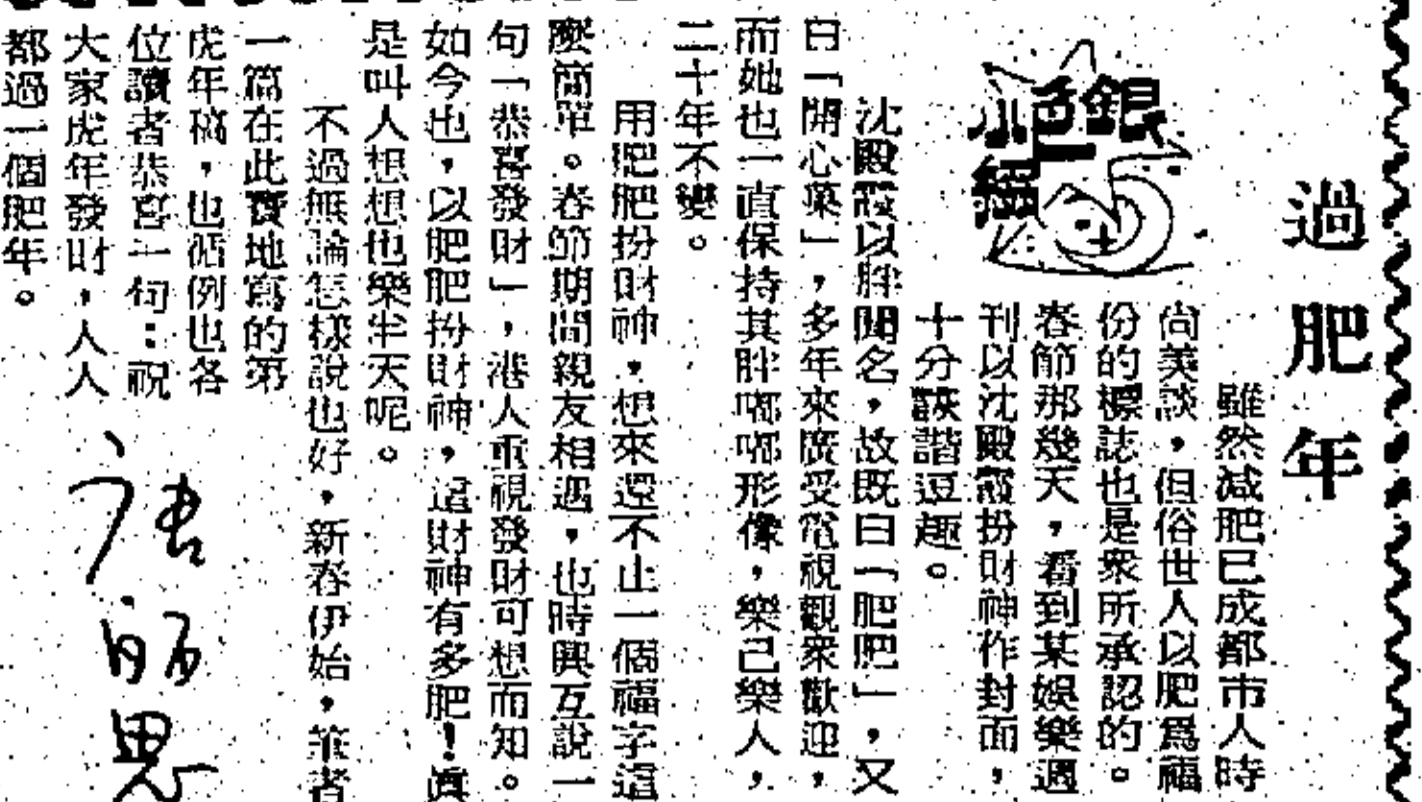 過肥年
銀色小組
雖然減肥已成都市人時
尙美談，但俗世人以肥爲福
份的標誌也是衆所承認的。
春節那幾天，看到某娛樂週
刊以沈殿霞扮財神作封面，
十分詼諧逗趣。
沈殿霞以胖聞名，故既曰「肥肥」，又
曰「開心菓」，多年來廣受電視觀衆歡迎，
而她也一直保持其胖嘟嘟形像，樂己樂人，
二十年不變。
用肥肥扮財神，想來還不止一個福字這
麼簡單。春節期間親友相遇，也時興互說一
句「恭喜發財」，港人重視發財可想而知。
如今也，以肥肥扮財神，這財神有多肥！眞
是叫人想想也樂半天呢。
不過無論怎樣說也好，新春伊始，筆者
一篇在此寶地寫的第
虎年稿，也循例也各
位讀者恭喜一句：祝
大家虎年發財，人人
都過一個肥年。